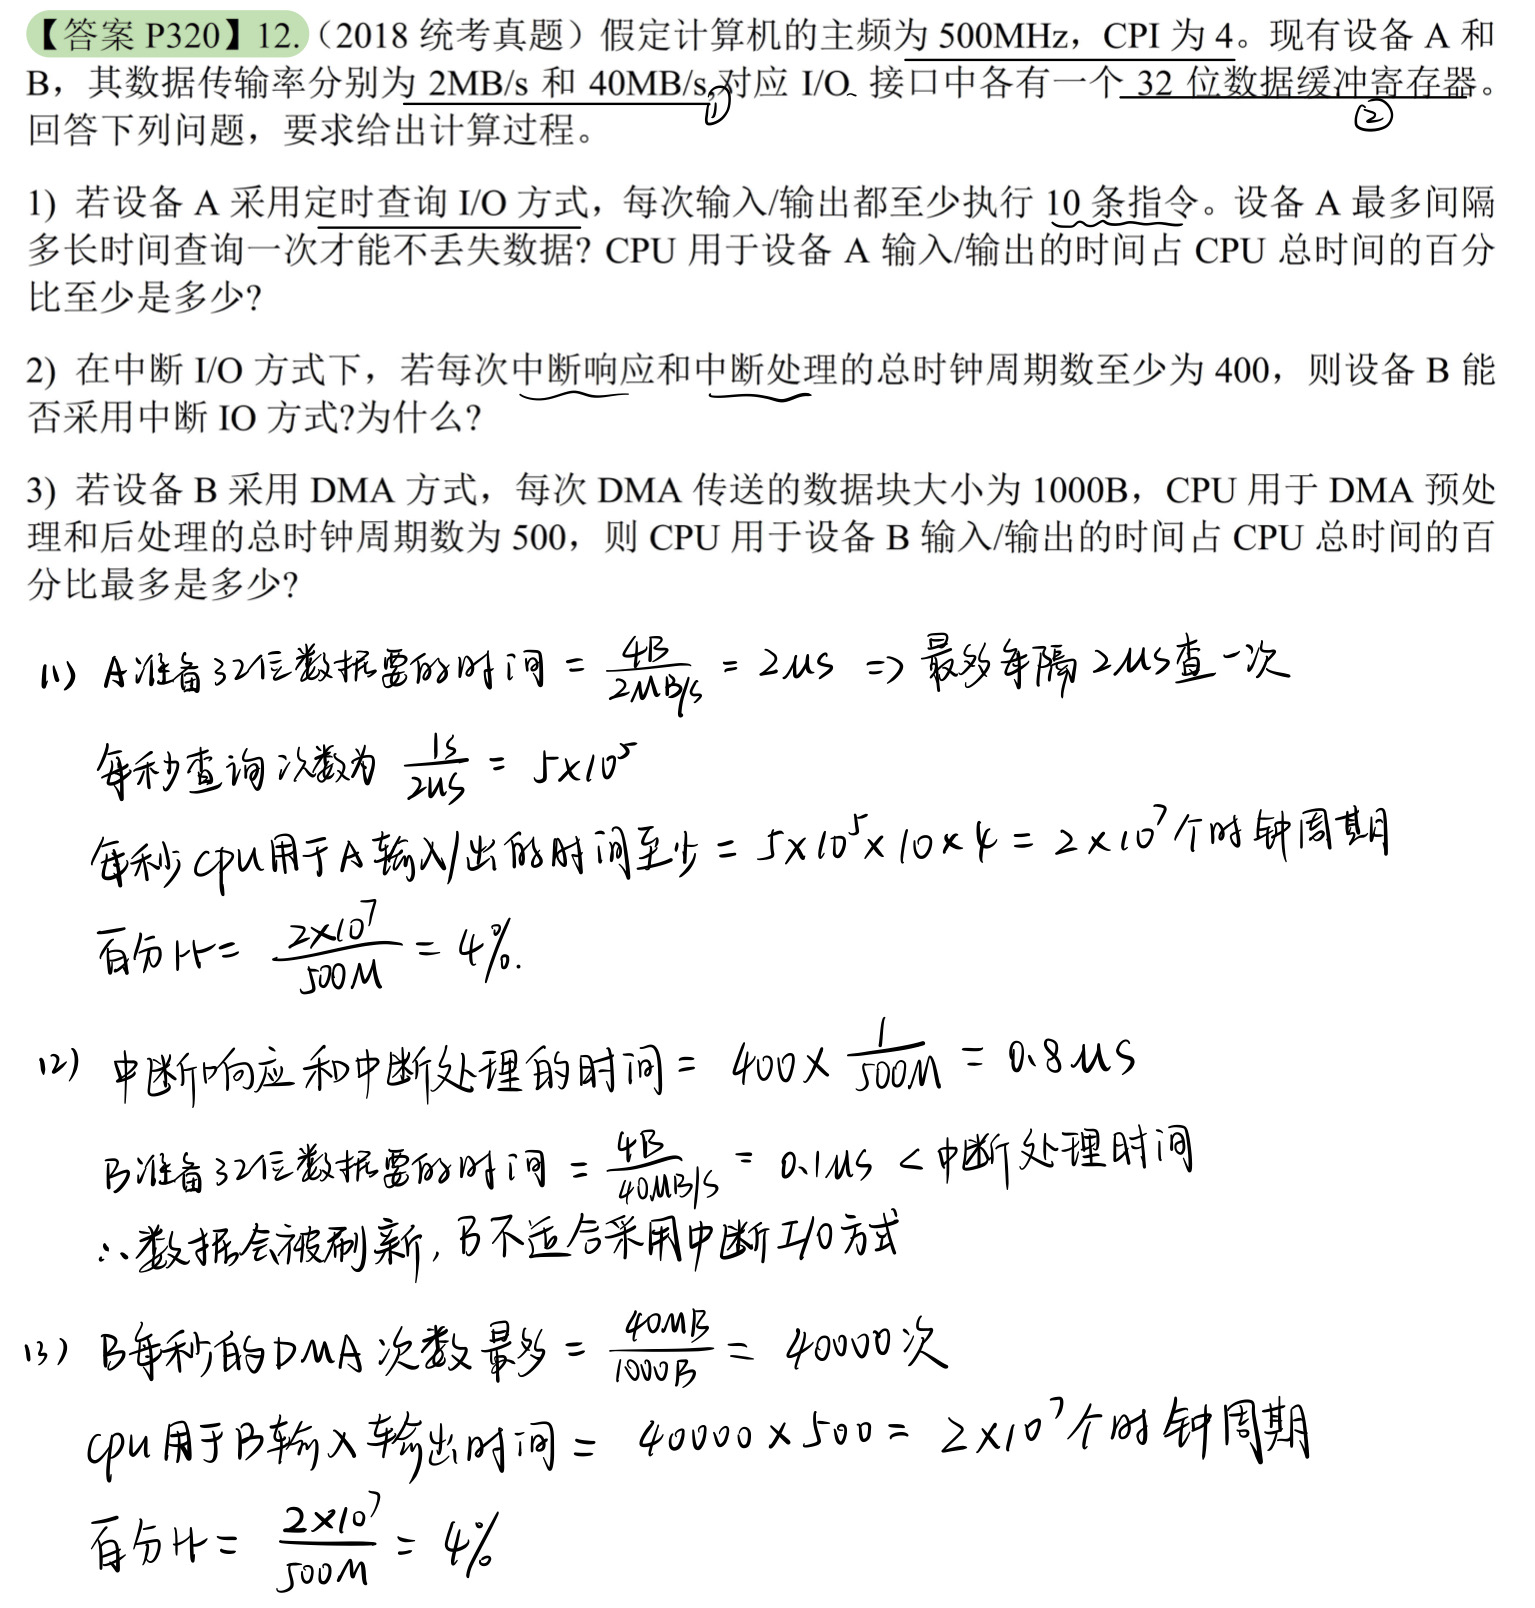 【答案 P320】12.（2018 统考真题）假定计算机的主频为 500MHz，CPI 为 4。现有设备 A 和
B，其数据传输率分别为 2MB/s 和 40MB/s,对应 I/O 接口中各有一个 32 位数据缓冲寄存器。
① ②
回答下列问题，要求给出计算过程。
1) 若设备 A 采用定时查询 I/O 方式，每次输入/输出都至少执行 10 条指令。设备 A 最多间隔
多长时间查询一次才能不丢失数据? CPU 用于设备 A 输入/输出的时间占 CPU 总时间的百分
比至少是多少?
2) 在中断 I/O 方式下，若每次中断响应和中断处理的总时钟周期数至少为 400，则设备 B 能
否采用中断 IO 方式?为什么?
3) 若设备 B 采用 DMA 方式，每次 DMA 传送的数据块大小为 1000B，CPU 用于 DMA 预处
理和后处理的总时钟周期数为 500，则 CPU 用于设备 B 输入/输出的时间占 CPU 总时间的百
分比最多是多少?
(1) A准备32位数据需的时间 = 4B/2MB/s = 2us => 最多每隔2us查一次
每秒查询次数为 1s/2us = 5×10⁵
每秒cpu用于A输入/出的时间至少 = 5×10⁵×10×4 = 2×10⁷个时钟周期
百分比 = 2×10⁷/500M = 4%.
(2) 中断响应和中断处理的时间 = 400× 1/500M = 0.8us
B准备32位数据需的时间 = 4B/40MB/s = 0.1us < 中断处理时间
∴数据会被刷新,B不适合采用中断I/O方式
(3) B每秒的DMA次数最多 = 40MB/1000B = 40000次
cpu用于B输入输出时间 = 40000×500 = 2×10⁷个时钟周期
百分比 = 2×10⁷/500M = 4%